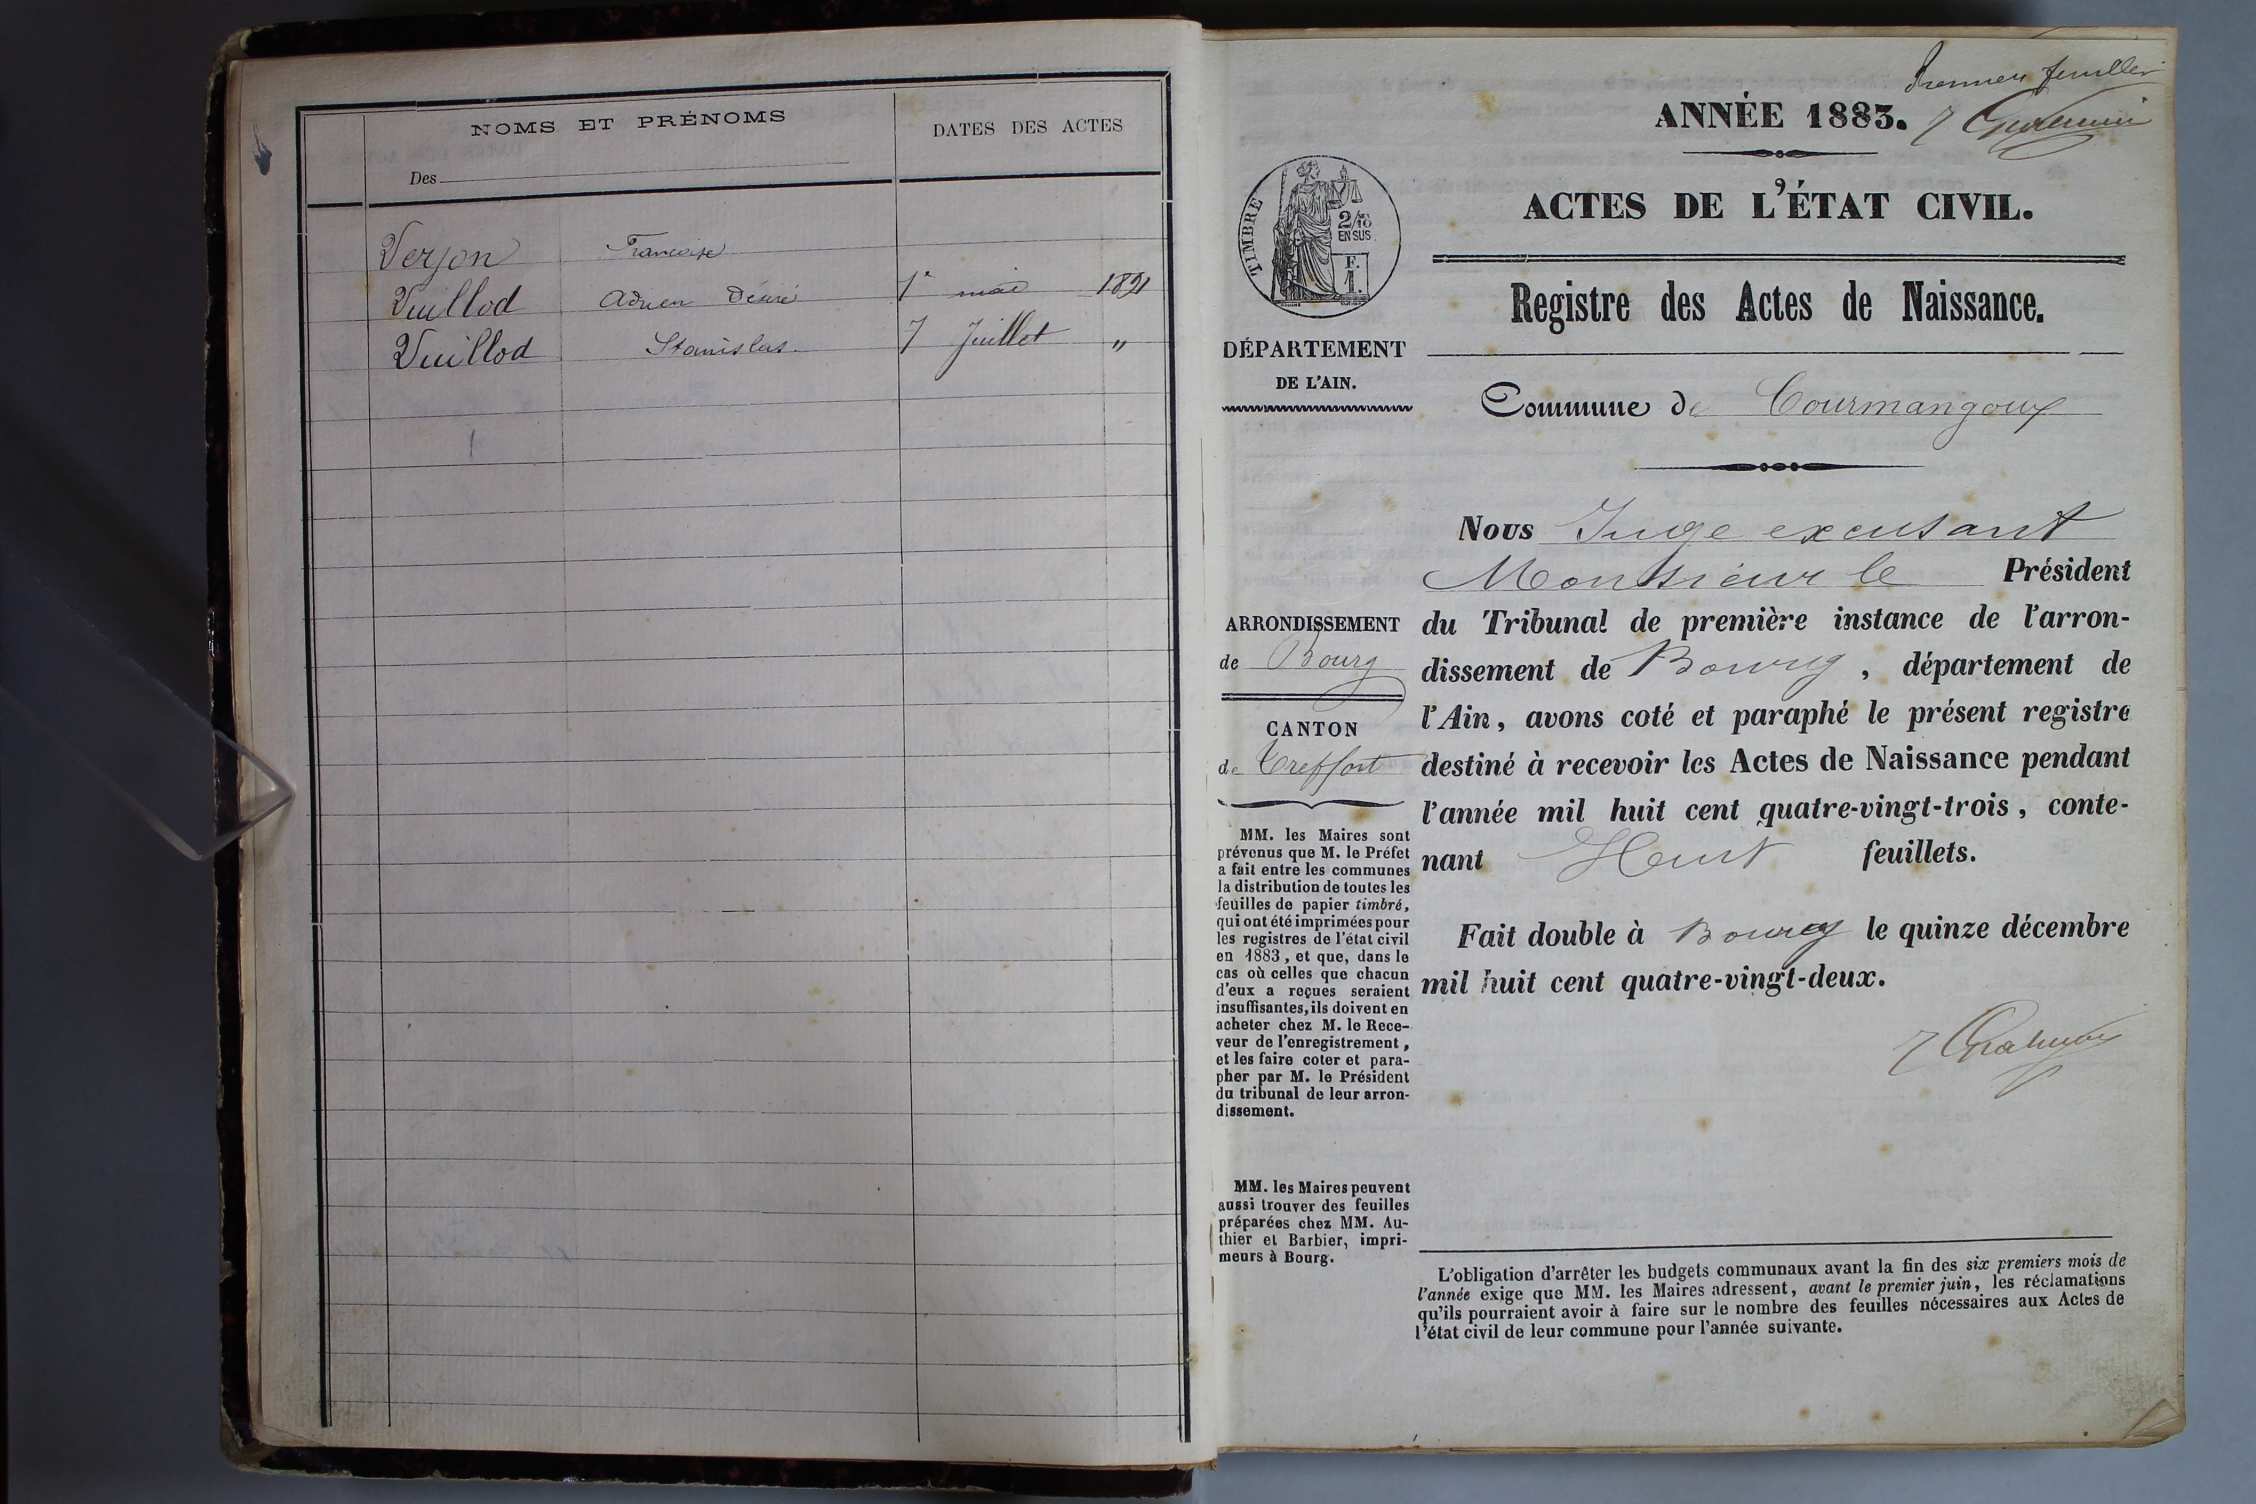 NOMS ET PRÉNOMS
DATES DES ACTES
Des
Verjon Françoise
Vuillod Adrien Désiré 1er mai 1891
Vuillod Stanislas 7 Juillet "
Premier feuillet
ANNÉE 1883.
ACTES DE L'ÉTAT CIVIL.
Registre des Actes de Naissance.
TIMBRE
2/10
EN SUS
F.
1.
DÉPARTEMENT
DE L'AIN.
Commune de Courmangoux
Nous Juge excusant
Monsieur le Président
du Tribunal de première instance de l'arron-
dissement de Bourg, département de
l'Ain, avons coté et paraphé le présent registre
destiné à recevoir les Actes de Naissance pendant
l'année mil huit cent quatre-vingt-trois, conte-
nant Huit feuillets.
Fait double à Bourg le quinze décembre
mil huit cent quatre-vingt-deux.
ARRONDISSEMENT
de Bourg
CANTON
de Treffort
MM. les Maires sont
prévenus que M. le Préfet
a fait entre les communes
la distribution de toutes les
feuilles de papier timbré,
qui ont été imprimées pour
les registres de l'état civil
en 1883, et que, dans le
cas où celles que chacun
d'eux a reçues seraient
insuffisantes, ils doivent en
acheter chez M. le Rece-
veur de l'enregistrement,
et les faire coter et para-
pher par M. le Président
du tribunal de leur arron-
dissement.
MM. les Maires peuvent
aussi trouver des feuilles
préparées chez MM. Au-
thier et Barbier, impri-
meurs à Bourg.
L'obligation d'arrêter les budgets communaux avant la fin des six premiers mois de
l'année exige que MM. les Maires adressent, avant le premier juin, les réclamations
qu'ils pourraient avoir à faire sur le nombre des feuilles nécessaires aux Actes de
l'état civil de leur commune pour l'année suivante.